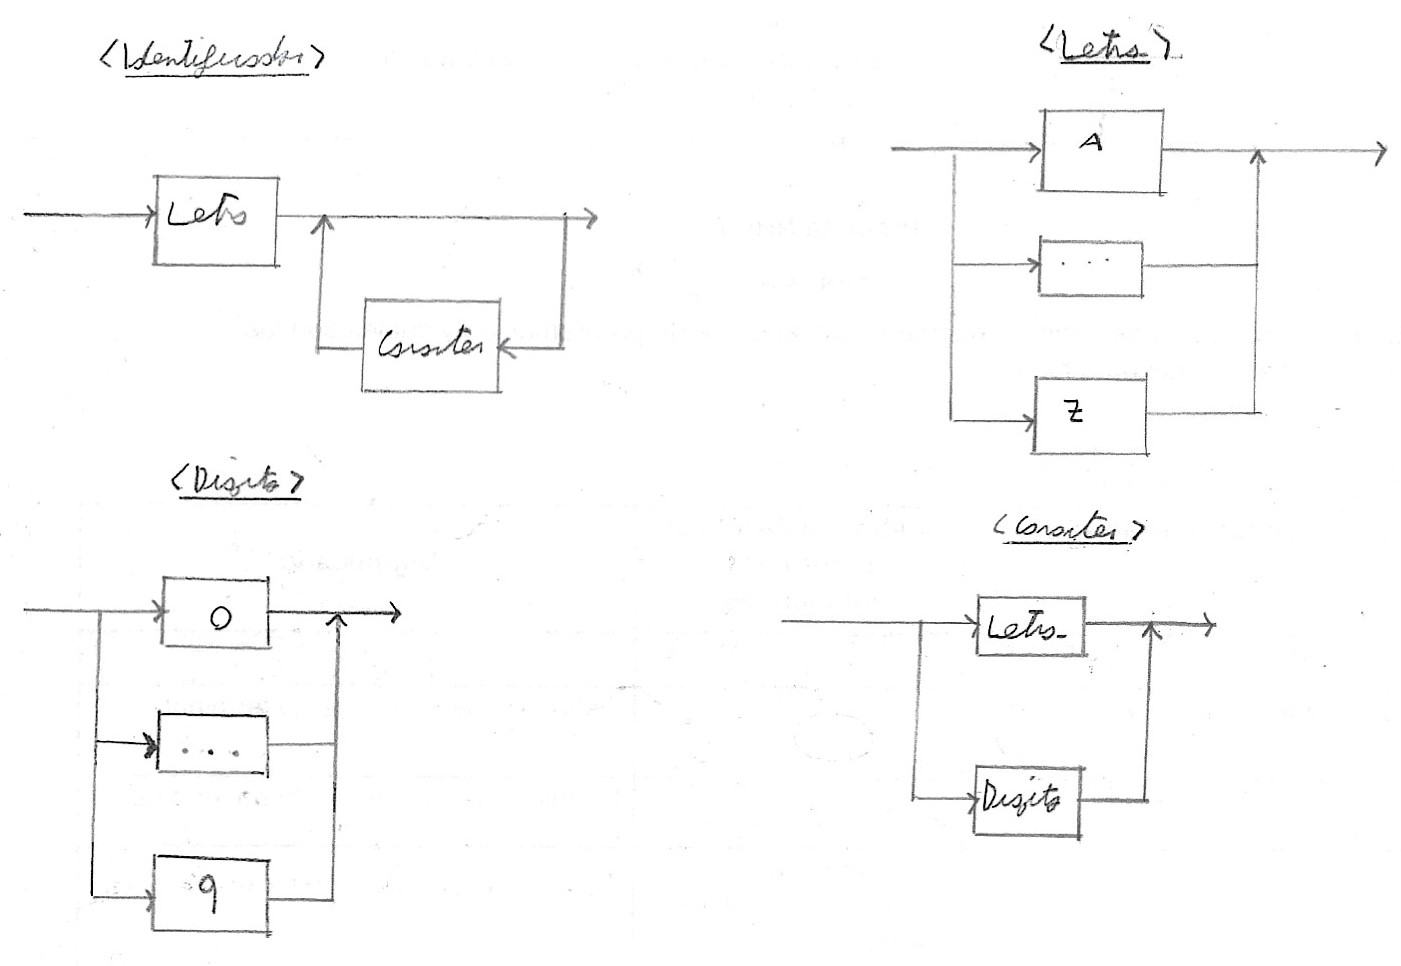 <Identificador>
Letra
Caracter
<Letra>
A
...
Z
<Digito>
0
...
9
<Caracter>
Letra
Digito